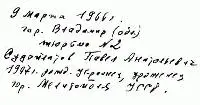 9 марта 1966 г.
гор. Владимир (обл)
тюрьма №2
Судоплатов Павел Анатольевич
1907 г. рожд. украинец, уроженец
гор. Мелитополя УССР.